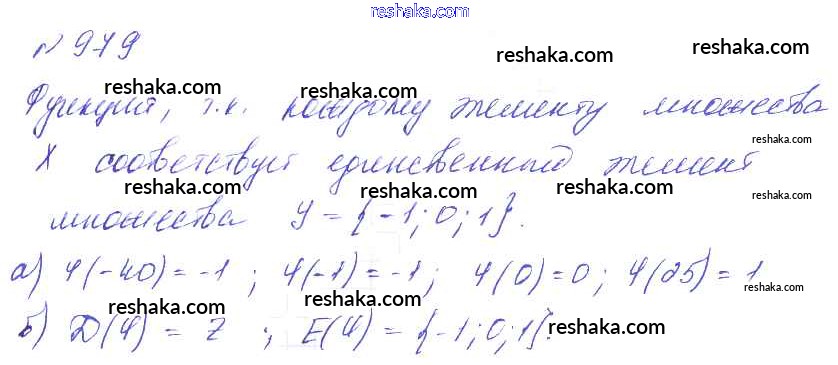 reshaka.com
№ 979
reshaka.com reshaka.com
Функция, т.к. каждому элементу множества
reshaka.com reshaka.com reshaka.com
X соответствует единственный элемент
reshaka.com reshaka.com reshaka.com
множества Y = {-1; 0; 1}.
а) φ(-40) = -1 ; φ(-1) = -1; φ(0)=0; φ(25) = 1
reshaka.com reshaka.com reshaka.com reshaka.com
б) D(φ) = Z ; E(φ) = {-1; 0; 1}.
reshaka.com reshaka.com